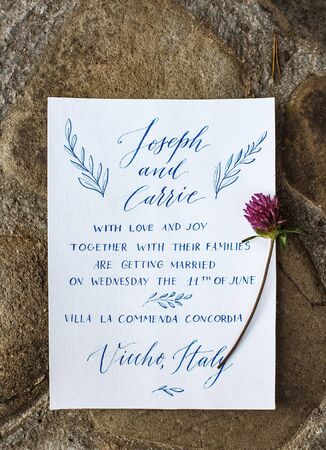 Joseph
and
Carrie
WITH LOVE AND JOY
TOGETHER WITH THEIR FAMILIES
ARE GETTING MARRIED
ON WEDNESDAY THE 11TH OF JUNE
VILLA LA COMMENDA CONCORDIA
Viccho, Italy